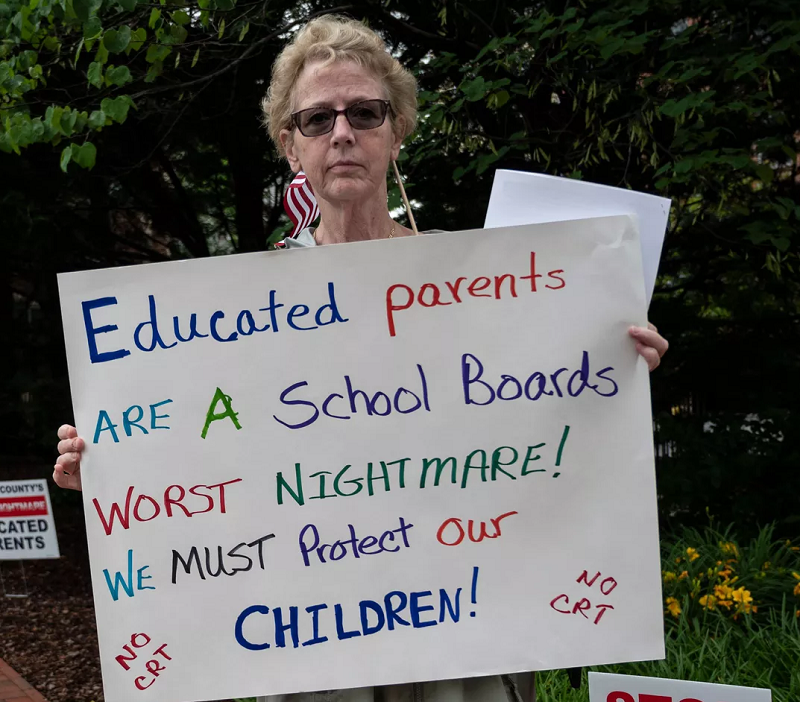 Educated parents
ARE A School Boards
WORST NIGHTMARE!
WE MUST Protect our
CHILDREN!
NO
CRT
NO
CRT
COUNTY'S
NIGHTMARE
CATED
RENTS